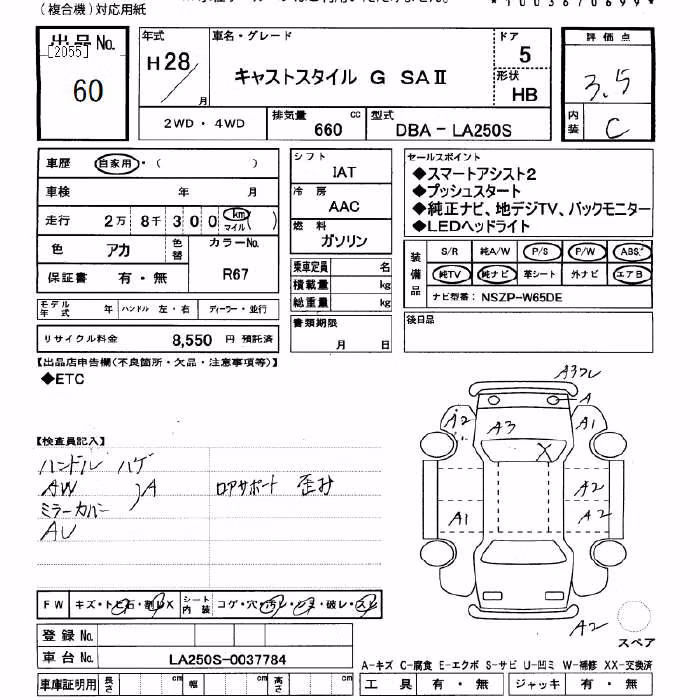 (複合機)対応用紙
*1003670699*
出品No.
[2055]
60
年式
H28
月
車名・グレード
キャストスタイル G SAⅡ
ドア
5
形状
HB
評価点
3.5
内装
C
2WD・4WD
排気量
660 cc
型式
DBA-LA250S
車歴 自家用・( )
車検 年 月
走行 2万 8千 300 (km マイル)
色 アカ
色替
カラーNo.
R67
保証書 有・無
モデル年式 年
ハンドル 左・右
ディーラー・並行
リサイクル料金 8,550 円 預託済
シフト
IAT
冷房
AAC
燃料
ガソリン
乗車定員 名
積載量 kg
総重量 kg
書類期限
月 日
セールスポイント
◆スマートアシスト2
◆プッシュスタート
◆純正ナビ、地デジTV、バックモニター
◆LEDヘッドライト
装備品
S/R 純A/W P/S P/W ABS
純TV 純ナビ 革シート 外ナビ エアB
ナビ型番: NSZP-W65DE
後日品
【出品店申告欄(不良箇所・欠品・注意事項等)】
◆ETC
【検査員記入】
ハンドル ハゲ
AW )A ロアサポート 歪み
ミラーカバー
AU
A
A2
A3
A1
X
A2
A1
A2
A2
スペア
FW キズ・トビ石・割レX
シート内装 コゲ・穴・汚レ・シミ・破レ・スレ
登録No.
車台No. LA250S-0037784
A-キズ C-腐食 E-エクボ S-サビ U-凹ミ W-補修 XX-交換済
車庫証明用 長さ cm 幅 cm 高さ cm
工具 有・無 ジャッキ 有・無